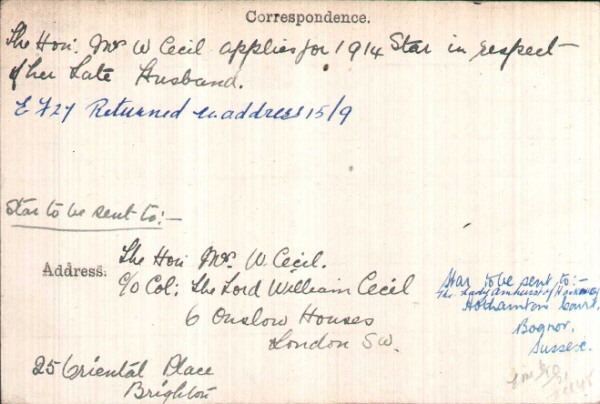 Correspondence.
The Hon: Mrs W Cecil applies for 1914 Star in respect
of her Late Husband.
E F 27 Returned re address 15/9
Star to be sent to:-
Address.
The Hon Mrs. W. Cecil.
C/o Col: The Lord William Cecil
6 Onslow Houses
London S.W.
25 Oriental Place
Brighton
Star to be sent to:-
The Lady Amherst of Hackney
Hothamton Court,
Bognor,
Sussex.